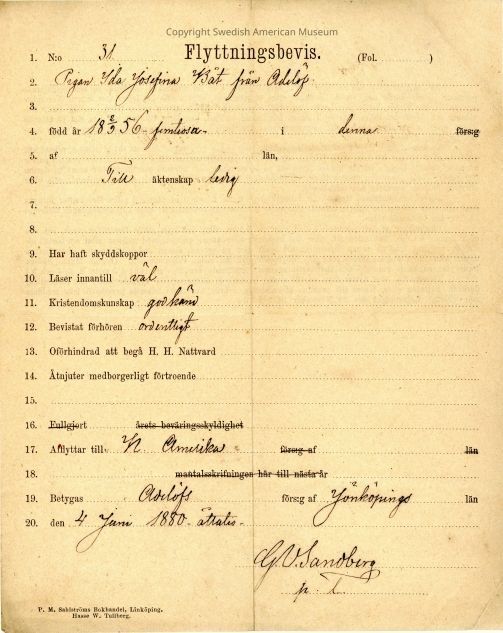 Copyright Swedish American Museum
1. N:o 31. Flyttningsbevis. (Fol. )
2. Pigan Ida Josefina Båt från Adelöf.
3.
4. född år 18 2/9 56 femtiosex i denna förs:g
5. af län,
6. Till äktenskap ledig
7.
8.
9. Har haft skyddskoppor
10. Läser innantill väl
11. Kristendomskunskap godkänd
12. Bevistat förhören ordentligt
13. Oförhindrad att begå H. H. Nattvard
14. Åtnjuter medborgerligt förtroende
15.
16. Fullgjort årets beväringsskyldighet
17. Afflyttar till N. Amerika förs:g af län
18. mantalsskrifningen här till nästa år
19. Betygas Adelöfs förs:g af Jönköpings län
20. den 4 Juni 1880 åttatio-
G. V. Sandberg
p. t.
P. M. Sahlströms Bokhandel, Linköping.
Hasse W. Tullberg.